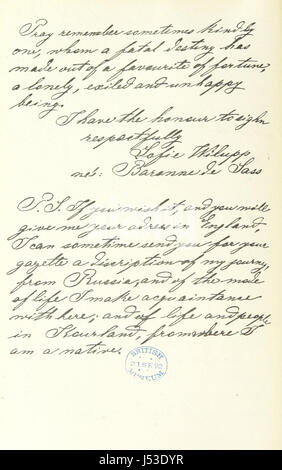 Pray remember sometimes kindly
one, whom a fatal destiny has
made out of a favourite of fortune,
a lonely, exiled and unhappy
being.
I have the honour to sign
respectfully
Sofie Wilupp
neé: Baronne de Sass
P. S. If you wish it, and you will
give me your adress in England,
I can sometime send you for your
gazette a discription of my journey
from Russia, and of the mode
of life I make acquaintance
with here; and of life and people
in Kourland, fromwhere I
am a native.
BRITISH
21 SE 92
MUSEUM
alamy stock photo
J53DYR